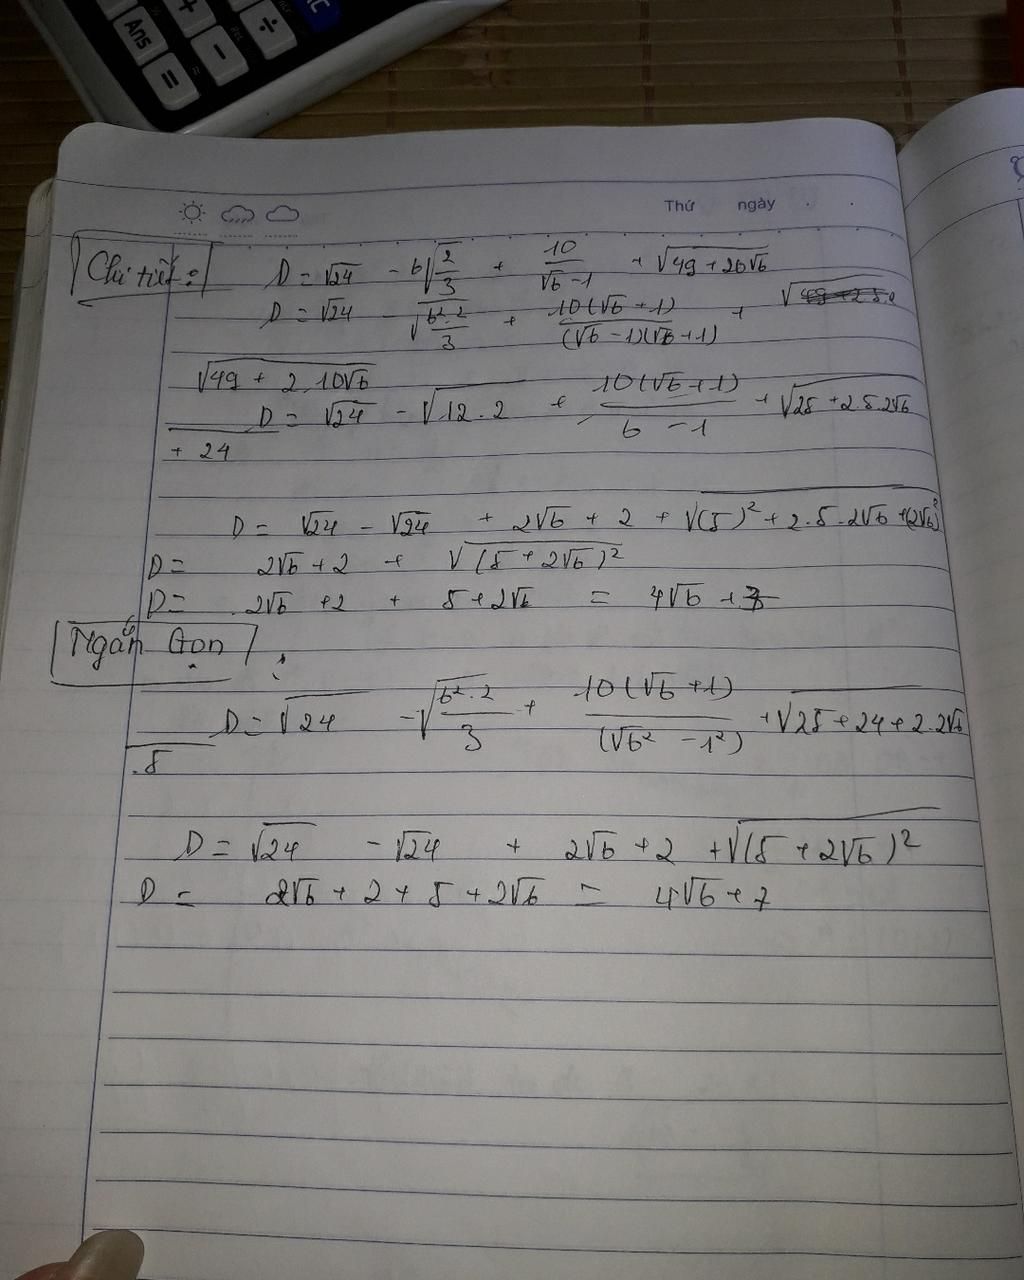 Ans + - ÷ =
Thứ ngày
Chi tiết: D = √24 - 6√(2/3) + 10/(√6 - 1) + √(49 + 20√6)
D = √24 - √(6².2/3) + 10(√6 + 1)/((√6 - 1)(√6 + 1)) +
√(49 + 2.10√6)
D = √24 - √(12.2) + 10(√6 + 1)/(6 - 1) + √(25 + 2.5.2√6
+ 24
D = √24 - √24 + 2√6 + 2 + √((5)² + 2.5.2√6 + (2√6)²
D = 2√6 + 2 + √((5 + 2√6)²)
D = 2√6 + 2 + 5 + 2√6 = 4√6 + 7
Ngắn Gọn:
D = √24 - √(6².2/3) + 10(√6 + 1)/(√6² - 1²) + √(25 + 24 + 2.2√6
.5
D = √24 - √24 + 2√6 + 2 + √((5 + 2√6)²)
D = 2√6 + 2 + 5 + 2√6 = 4√6 + 7